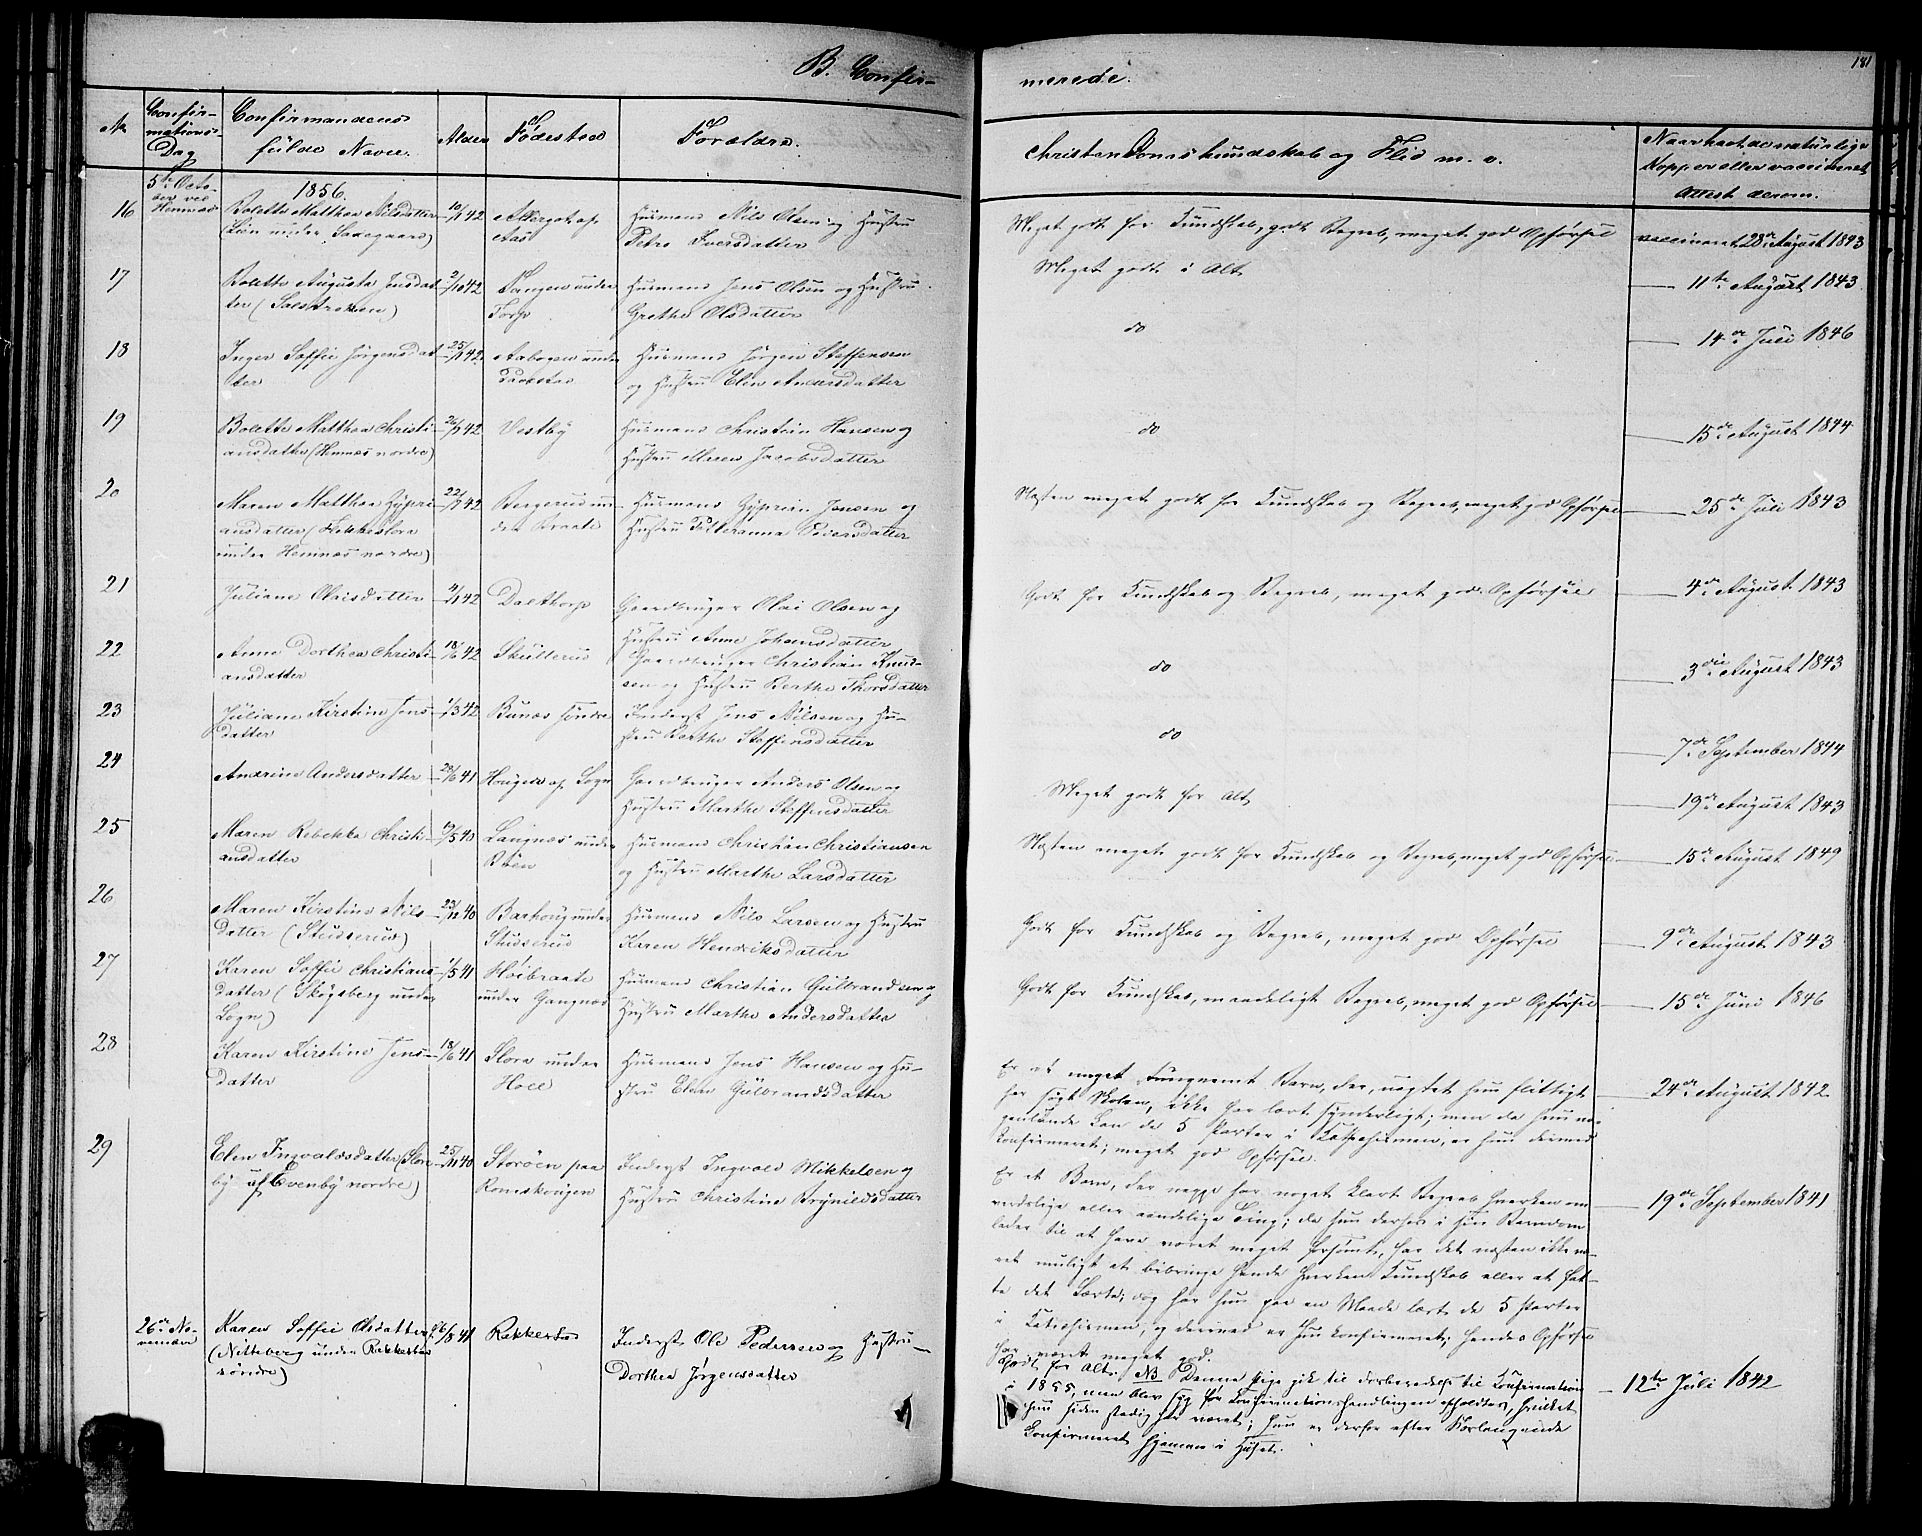 B. Confir-
merede.
181
No
Confir-
mations-
Dag
Confirmandens
fulde Navn.
Alder
Fødested
Forældre.
Christendomskundskab og Flid m. v.
Naar havt de naturlige
Kopper eller vaccineret
Attest derom.
5te Octo-
ber ved
Hemnæs
1856.
16
Bolette Matthea Nilsdatter
(Lien under Saxegaard)
42
Aas
Husmand Nils Olsen og Hustru
Petra Iversdatter
Meget godt for Kundskab, godt Begreb, meget god Opførsel
vaccineret 28de August 1843
17
Bolette Augusta Jensdat
ter
2/10 42
Tangen under
Torp
Husmand Jens Olsen og Hustru
Grethe Olsdatter
Meget godt i Alt
11te August 1843
18
Inger Soffie Jørgensdat
ter
25/ 42
under
Husmand Jørgen Steffensen
og Hustru Elen Andersdatter
do
14de Juli 1846
19
Bolette Matthea Christi-
ansdatter (Hemnæs nordre)
26/ 42
Vestby
Husmand Christian Hansen og
Hustru Maren Jacobsdatter
do
15de August 1844
20
Maren Matthea Gypri
ansdatter (
under Hemnæs nordre)
22/ 42
Bergerud un-
der Kraali
Husmand Gyprian Jensen og
Hustru Iversdatter
Næsten meget godt for Kundskab og Begreb, meget god Opførsel
25de Juli 1843
21
Juliane Olaisdatter
4/ 42
Dalthorp
Gaardbruger Olai Olsen og
Hustru Anne Johansdatter
Godt for Kundskab og Begreb, meget god Opførsel
4de August 1843
22
Anne Dorthea Christi-
ansdatter
18/6 42
Skullerud
Gaardbruger Christian Knud-
sen og Hustru Berthe Thorsdatter
do
3die August 1843
23
Juliane Kirstine Jens-
datter
1/3 42
Bunæs søndre
Inderst Jens Nilsen og Hu-
stru Berthe Steffensdatter
do
7de September 1844
24
Andrine Andersdatter
28/6 41
Haugen af Sogn
Gaardbruger Anders Olsen og
Hustru Marthe Steffensdatter
Meget godt for Alt
19de August 1843
25
Maren Rebekka Christi-
ansdatter
19/5 40
Langnæs under
Husmand Christian Christiansen
og Hustru Marthe Larsdatter
Næsten meget godt for Kundskab og Begreb, meget god Opførsel
15de August 1849
26
Maren Kirstine Nils
datter (Studserud)
23/12 40
Barhoug under
Studserud
Husmand Nils Larsen og Hustru
Karen Henriksdatter
Godt for Kundskab og Begreb, meget god Opførsel
9de August 1843
27
Karen Soffie Christians
datter (Skogsberg under
Sogn)
1/5 41
Høibraate
under Gangnæs
Husmand Christian Gulbrandsen og
Hustru Marthe Andersdatter
Godt for Kundskab, maadeligt Begreb, meget god Opførsel
15de Juni 1846
28
Karen Kirstine Jens-
datter
18/6 41
Slora under
Holl
Husmand Jens Hansen og Hu-
stru Elen Gulbrandsdatter
Er et meget tungnemt Barn, der, uagtet hun flittigt
har søgt Skolen, ikke har lært synderligt; men da hun no-
genlunde kan de 5 Parter i Katechismen, er hun dermed
konfirmeret; meget god Opførsel.
24de August 1842
29
Elen Ingvaldsdatter (Slore
by af Evenby nordre)
25/11 40
Storøen paa
Romskougen
Inderst Ingvald Mikkelsen og
Hustru Christine Brynildsdatter
Er et Barn, der neppe har noget klart Begreb hverken om
verdslige eller aandelige Ting; da hun derhos i sin Barndom
lader til at have været meget forsømt, har det næsten ikke væ-
ret muligt at bibringe hende hverken Kundskab eller at fat-
te det Lærte; dog har hun paa en Maade lært de 5 Parter
i Katechismen, og dermed er hun konfirmeret; hendes Opførsel
har været meget god.
19de September 1841
26de No-
vember
Karen Soffie Olsdatter
(Nitteberg under Rakkestad
søndre)
26/8 41
Rakkestad
Inderst Ole Pedersen og Hustru
Dorthea Jørgensdatter
Godt for Alt. NB Denne Pige gik til Forberedelse til Konfirmation
i 1855, men blev syg før Konfirmationshandlingen afholdtes, hvilket
hun siden stadig har været; hun er derfor efter Forlangende
konfirmeret hjemme i Huset.
12te Juli 1842